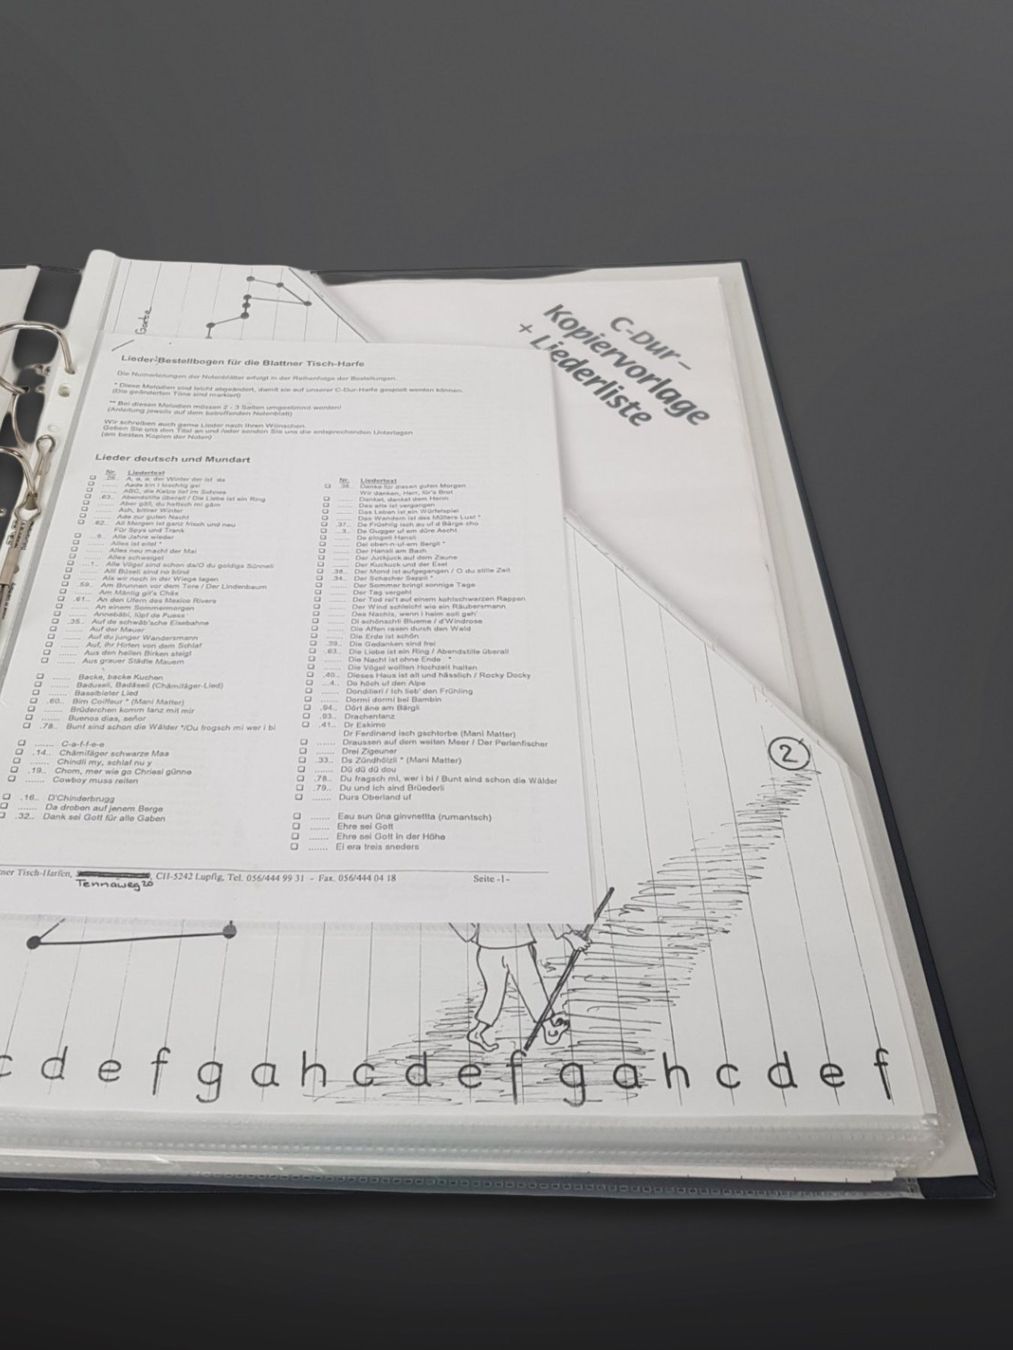 C-Dur-
Kopiervorlage
+ Liederliste
Lieder-Bestellbogen für die Blattner Tisch-Harfe
Die Numerierungen der Notenblätter erfolgt in der Reihenfolge der Bestellungen.
* Diese Melodien sind leicht abgeändert, damit sie auf unserer C-Dur-Harfe gespielt werden können.
(Die geänderten Töne sind markiert)
** Bei diesen Melodien müssen 2 - 3 Saiten umgestimmt werden!
(Anleitung jeweils auf dem betreffenden Notenblatt)
Wir schreiben auch gerne Lieder nach Ihren Wünschen.
Geben Sie uns den Titel an und /oder senden Sie uns die entsprechenden Unterlagen
(am besten Kopien der Noten)
Lieder deutsch und Mundart
Nr. Liedertext
.26.. A, a, a, der Winter der ist da
ABC, die Katze lief im Schnee
.63.. Abendstille überall / Die Liebe ist ein Ring
...... Ach, bittrer Winter
...... Ade zur guten Nacht
.62.. All Morgen ist ganz frisch und neu
Für Spys und Trank
...9.. Alle Jahre wieder
...... Alles ist eitel *
...... Alles neu macht der Mai
...... Alles schweiget
...1.. Alle Vögel sind schon da/O du goldigs Sünneli
...... Alli Büseli sind no blind
...... Als wir noch in der Wiege lagen
.59.. Am Brunnen vor dem Tore / Der Lindenbaum
...... Am Mäntig git's Chäs
.61.. An den Ufern des Mexico Rivers
...... An einem Sommermorgen
...... Annebäbi, lüpf de Fuess
.35.. Auf de schwäb'sche Eisebahne
...... Auf der Mauer
...... Auf du junger Wandersmann
...... Auf, ihr Hirten von dem Schlaf
...... Aus den hellen Birken steigt
...... Aus grauer Städte Mauern
...... Backe, backe Kuchen
...... Baduseli, Badäseli (Chämifäger-Lied)
...... Baselbieter Lied
.60.. Bim Coiffeur * (Mani Matter)
...... Brüderchen komm tanz mit mir
...... Buenos dias, señor
.78.. Bunt sind schon die Wälder */Du frogsch mi wer i bi
...... C-a-f-f-e-e
.14.. Chämifäger schwarze Maa
...... Chindli my, schlaf nu y
.19.. Chom, mer wie go Chriesi günne
...... Cowboy muss reiten
.16.. D'Chinderbrugg
...... Da droben auf jenem Berge
.32.. Dank sei Gott für alle Gaben
Nr. Liedertext
.36.. Danke für diesen guten Morgen
Wir danken, Herr, für's Brot
...... Danket, dankt dem Herrn
...... Das alte ist vergangen
...... Das Leben ist ein Würfelspiel
...... Das Wandern ist des Müllers Lust *
.37.. De Früehlig isch au uf d Bärge cho
...3.. De Gugger uf em düre Ascht
...... De pingeli Hansli
...... Dei oben-n-uf-em Bergli *
...... Der Hansli am Bach
...... Der Juckjuck auf dem Zaune
...... Der Kuckuck und der Esel
.38.. Der Mond ist aufgegangen / O du stille Zeit
.34.. Der Schacher Seppli *
...... Der Sommer bringt sonnige Tage
...... Der Tag vergeht
...... Der Tod reit't auf einem kohlschwarzen Rappen
...... Der Wind schleicht wie ein Räubersmann
...... Des Nachts, wenn i heim soll geh'
...... Di schönschti Blueme / d'Windrose
...... Die Affen rasen durch den Wald
...... Die Erde ist schön
.39.. Die Gedanken sind frei
.63.. Die Liebe ist ein Ring / Abendstille überall
...... Die Nacht ist ohne Ende *
...... Die Vögel wollten Hochzeit halten
.40.. Dieses Haus ist alt und hässlich / Rocky Docky
...4.. Do höch uf den Alpe
...... Dondilieri / Ich lieb' den Frühling
...... Dormi dormi bel Bambin
.94.. Dört äne am Bärgli
.93.. Drachentanz
.41.. Dr Eskimo
Dr Ferdinand isch gschtorbe (Mani Matter)
...... Draussen auf dem weiten Meer / Der Perlenfischer
...... Drei Zigeuner
.33.. Ds Zündhölzli * (Mani Matter)
...... Dü dü dü dou
.78.. Du fragsch mi, wer i bi / Bunt sind schon die Wälder
.79.. Du und ich sind Brüederli
...... Durs Oberland uf
...... Eau sun üna ginvnellta (rumantsch)
...... Ehre sei Gott
...... Ehre sei Gott in der Höhe
...... Ei era treis sneders
Tisch-Harfen, CH-5242 Lupfig, Tel. 056/444 99 31 - Fax. 056/444 04 18 Seite -1-
Tennaweg 20
2
c d e f g a h c d e f g a h c d e f